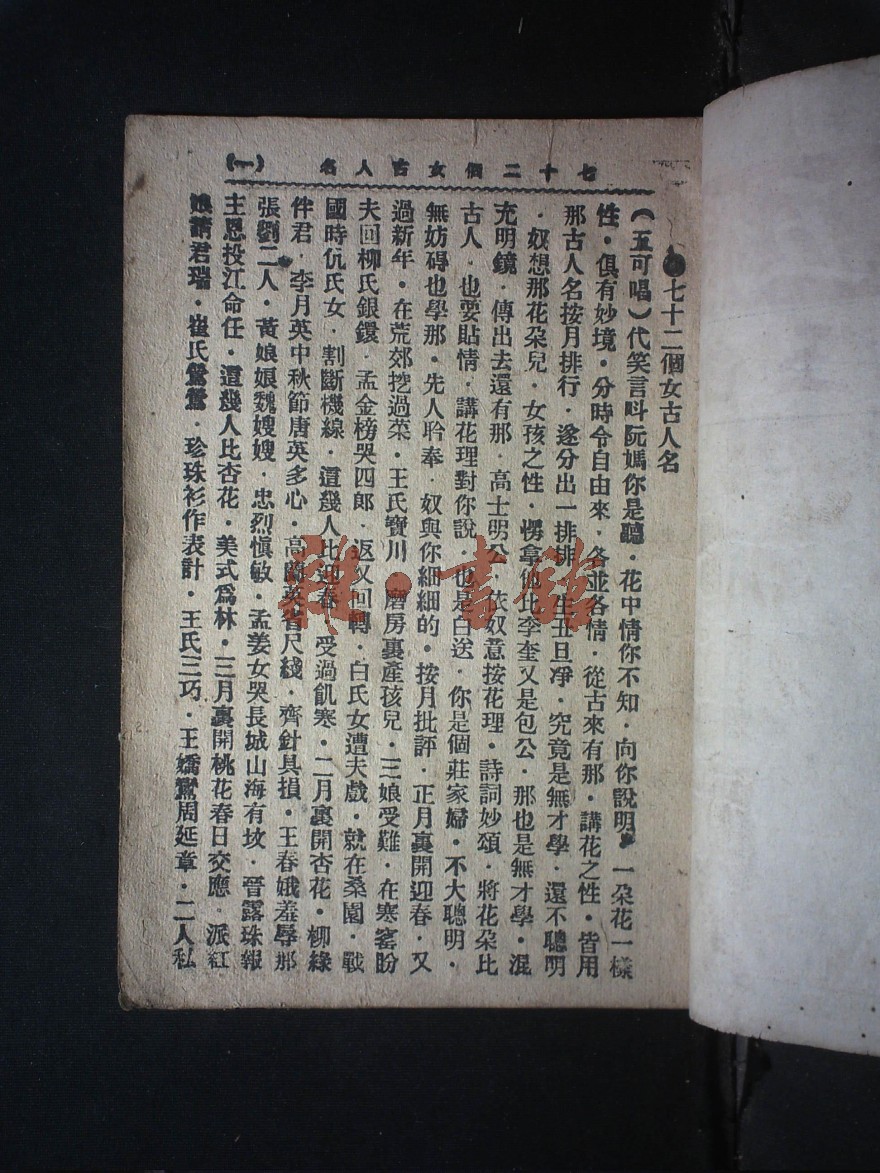 七十二個女古人名 (一)
七十二個女古人名
(五可唱)代笑言叫阮媽你是聽·花中情你不知·向你說明·一朵花一樣
性·俱有妙境·分時令自由來·各並各情·從古來有那·講花之性·皆用
那古人名按月排行·遂分出一排排·生丑旦凈·究竟是無才學·還不聰明
·奴想那花朵兒·女孩之性·愣拿他比李奎又是包公·那也是無才學·混
充明鏡·傳出去還有那·高士明公·依奴意按花理·詩詞妙頌·將花朵比
古人·也要貼情·講花理對你說·也是白送·你是個莊家婦·不大聰明·
無妨碍也學那·先人聆奉·奴與你細細的·按月批評·正月裏開迎春·又
過新年·在荒郊挖過菜·王氏寶川·磨房裏產孩兒·三娘受難·在寒窰盼
夫回柳氏銀鐶·孟金榜哭四郎·返又回轉·白氏女遭夫戲·就在桑園·戰
國時伉氏女·割斷機線·這幾人比迎春·受過飢寒·二月裏開杏花·柳綠
伴君·李月英中秋節唐英多心·高蘭英省尺綫·齊針具損·王春娥羞辱那
張劉二人·黃娘娘魏嫂嫂·忠烈慎敏·孟姜女哭長城山海有坟·晉露珠報
主恩投江命任·這幾人比杏花·美式爲林·三月裏開桃花春日交應·派紅
娘請君瑞·崔氏鶯鶯·珍珠衫作表計·王氏三巧·王嬌鸞周延章·二人私
雜·書館